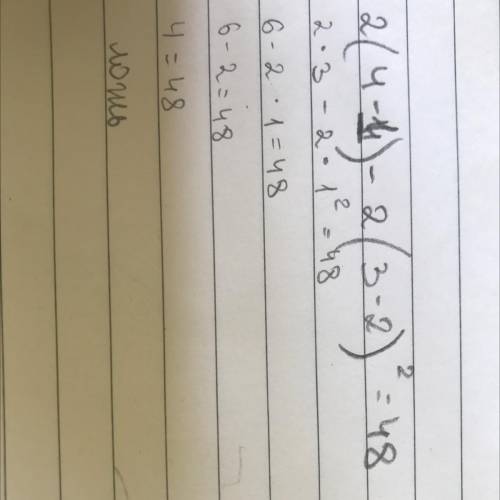 2(4-1)-2(3-2)² = 48
2·3-2·1² = 48
6-2·1=48
6-2=48
4=48
ложь